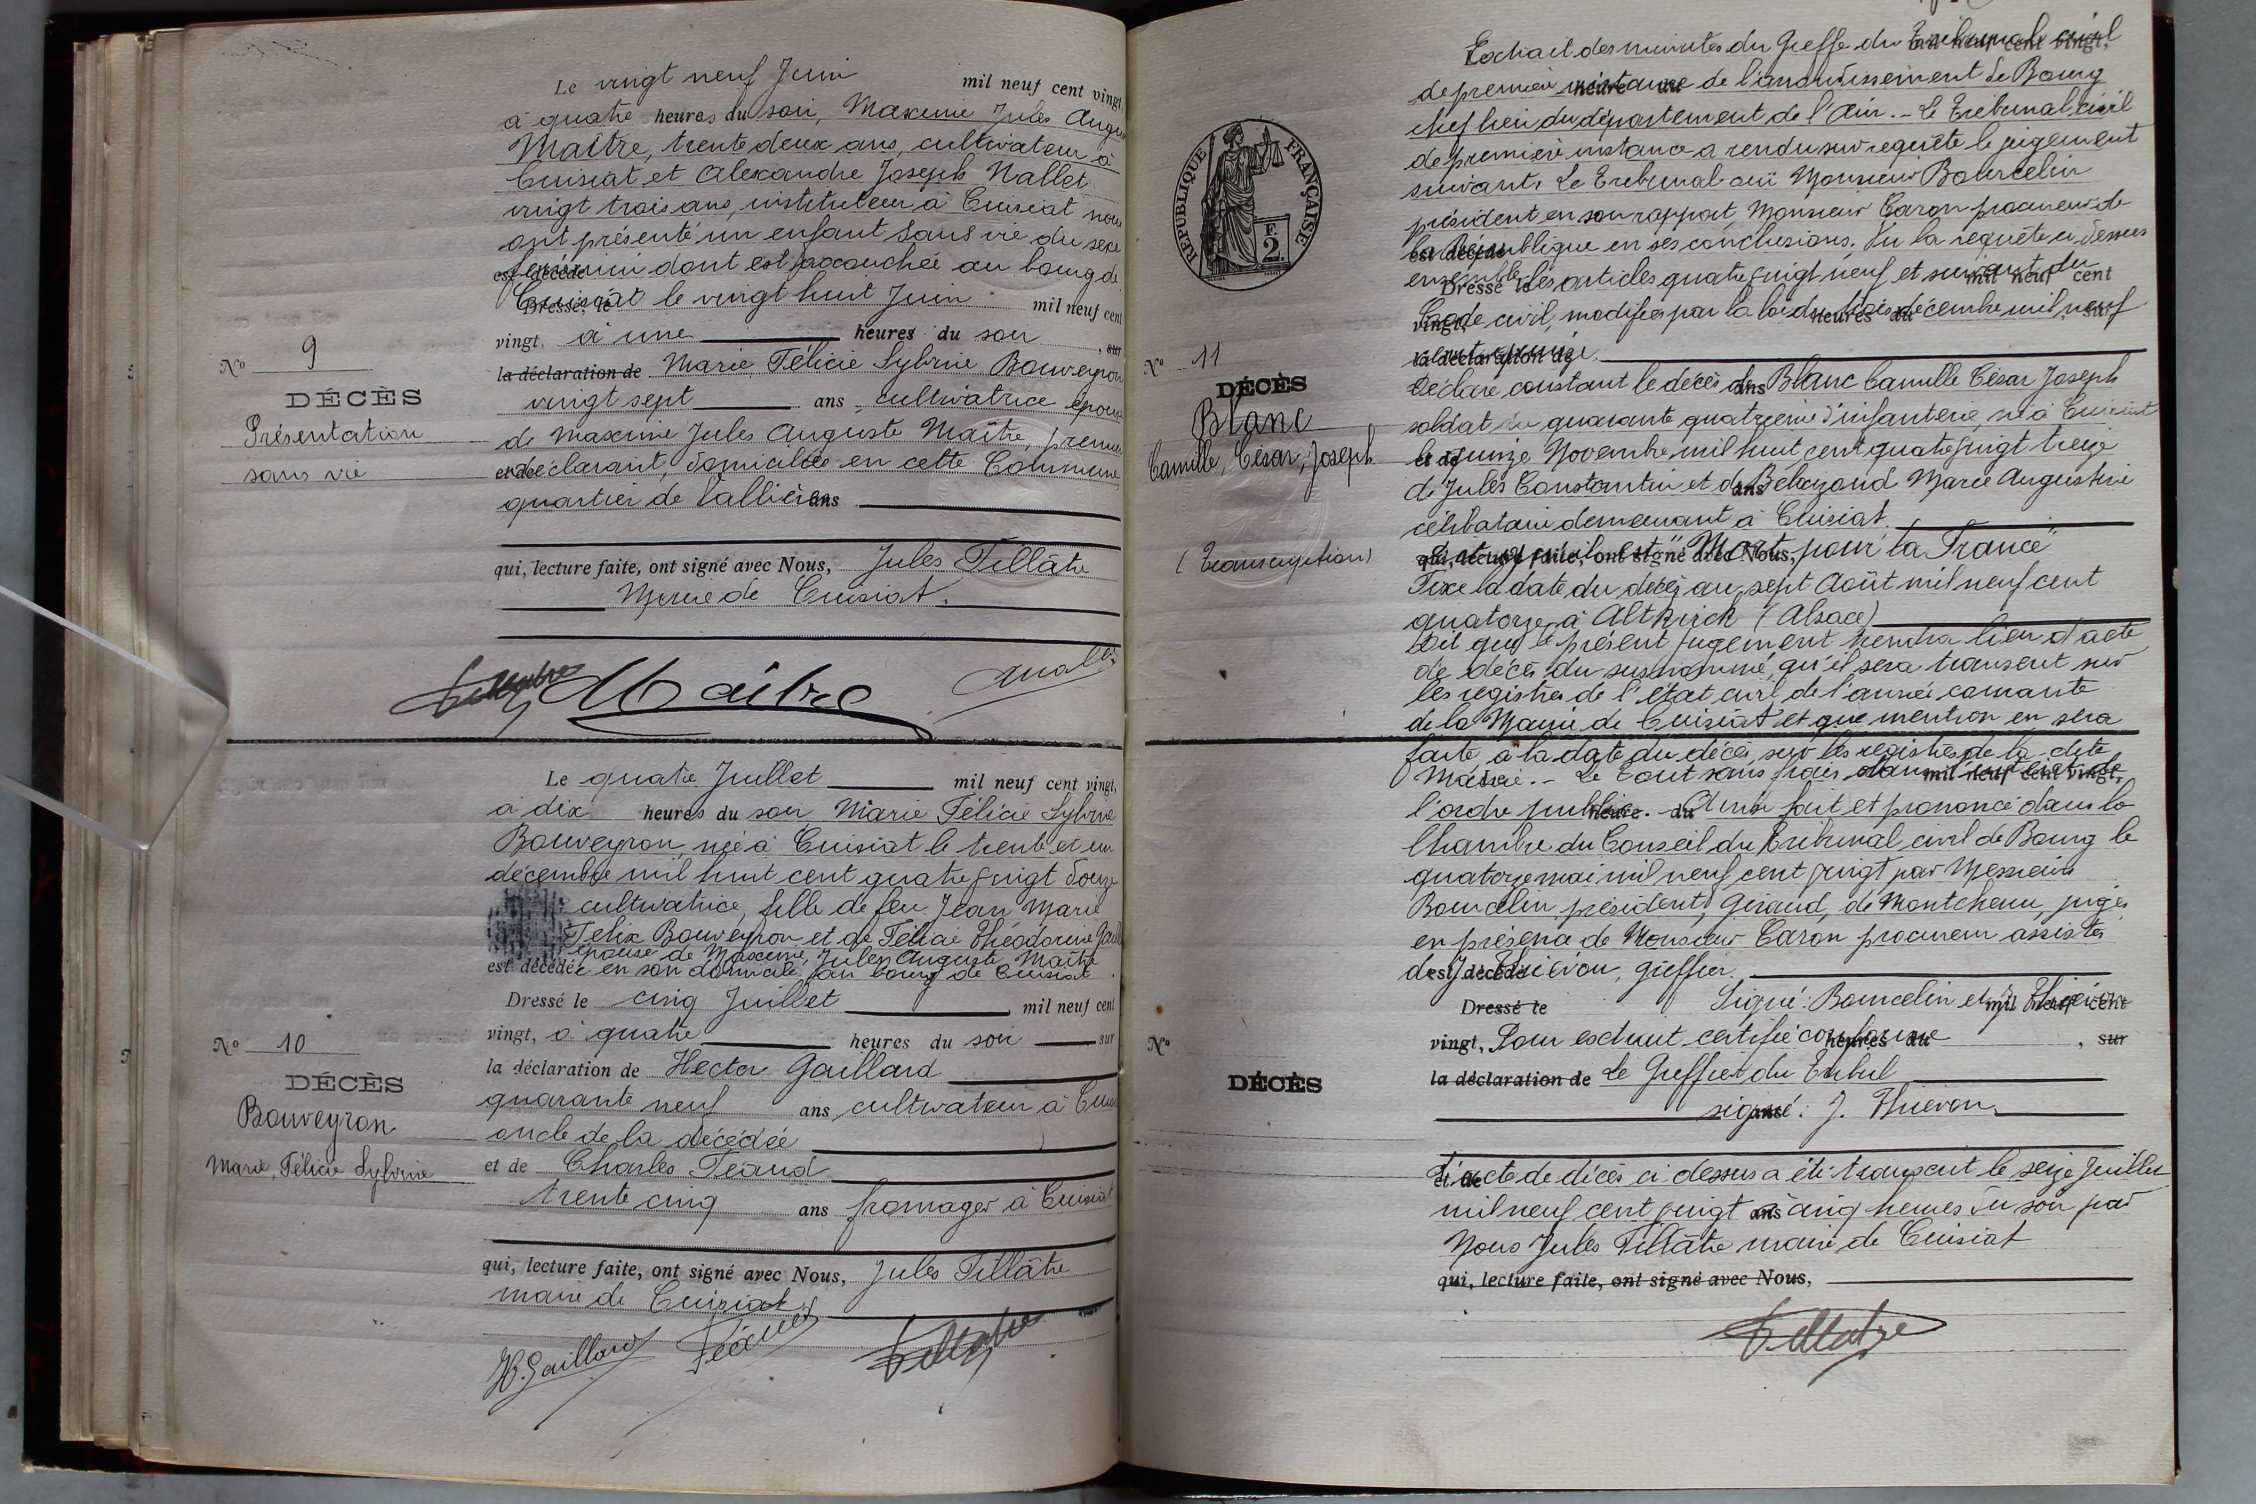 Le vingt neuf Juin mil neuf cent vingt,
à quatre heures du soir, Maxime Jules Augus
Maître, trente deux ans, cultivateur à
Cuisiat et Alexandre Joseph Nallet
vingt trois ans, instituteur à Cuisiat nous
ont présenté un enfant sans vie du sexe
est décédé féminin dont est accouchée au bourg de
Dressé, le Cuisiat le vingt huit Juin mil neuf cent
vingt, à une heures du soir, sur
la déclaration de Marie Félicie Sylvine Bouveyron
vingt sept ans, cultivatrice épouse
de Maxime Jules Auguste Maître, premier
et de déclarant, domiciliée en cette Commune
quartier de Vallières ans
qui, lecture faite, ont signé avec Nous, Jules Tillâtre
Maire de Cuisiat.
Nº 9
DÉCÈS
Présentation
sans vie
Tillatre Maître
Le quatre Juillet mil neuf cent vingt,
à dix heures du soir Marie Félicie Sylvine
Bouveyron, née à Cuisiat le trente et un
décembre mil huit cent quatre vingt douze
cultivatrice, fille de feu Jean Marie
Félix Bouveyron et de Félicie Théodorine
épouse de Maxime, Jules Auguste Maître
est décédée en son domicile au bourg de Cuisiat.
Dressé le cinq Juillet mil neuf cent
vingt, à quatre heures du soir sur
la déclaration de Hector Gaillard
quarante neuf ans, cultivateur à
oncle de la décédée
et de Charles Féaud
trente cinq ans fromager à Cuisiat
qui, lecture faite, ont signé avec Nous, Jules Tillâtre
maire de Cuisiat
Nº 10
DÉCÈS
Bouveyron
Marie, Félicie Sylvine
H. Gaillard Féaud Tillatre
Extrait des minutes du Greffe du Tribunal civil mil neuf cent vingt,
de première instance heure du de l'arrondissement de Bourg
chef lieu du département de l'Ain. - Le Tribunal civil
de première instance a rendu sur requête le jugement
suivant: Le Tribunal ouï Monsieur Bourcelin
président en son rapport, Monsieur Caron procureur de
la République est décédé en ses conclusions. Vu la requête ci dessus
ensemble Dressé le les articles quatre vingt neuf et suivants du mil neuf cent
vingt, Code civil, modifiés par la loi du trois heures du décembre mil neuf sur
la déclaration de cent quinze.
Déclare constant le décès de ans Blanc Camille César Joseph
soldat au quarante quatrième d'infanterie, né à Cuisiat
et de le quinze Novembre mil huit cent quatre vingt treize
de Jules Constantin et de ans Marie Augustine
célibataire demeurant à Cuisiat.
qui, lecture faite, ont signé avec Nous, "Mort pour la France"
Fixe la date du décès au sept Août mil neuf cent
quatorze à Altkirch (Alsace)
Dit que le présent jugement tiendra lieu d'acte
de décès du susnommé, qu'il sera transcrit sur
les registres de l'état civil de l'année courante
de la Mairie de Cuisiat et que mention en sera
faite, à la date du décès, sur les registres de la dite
Mairie. - Le tout sans frais dans l'intérêt de mil neuf cent vingt,
l'ordre public. - heure du Ainsi fait et prononcé dans la
Chambre du Conseil du Tribunal civil de Bourg le
quatorze mai mil neuf cent vingt par Messieurs
Bourcelin président, Giraud, de Montchenu, juges
en présence de Monsieur Caron procureur assistés
de J. Thievon, greffier. est décédé
Dressé le Signé: Bourcelin et J. Thievon mil neuf cent
vingt, Pour extrait certifié conforme heures du, sur
la déclaration de Le Greffier du Tribul
signé: ans J. Thievon
et de L'acte de décès ci dessus a été transcrit le seize Juillet
mil neuf cent vingt à ans cinq heures du soir par
Nous Jules Tillâtre maire de Cuisiat
qui, lecture faite, ont signé avec Nous,
Tillatre
RÉPUBLIQUE FRANÇAISE
F.
2.
Nº 11
DÉCÈS
Blanc
Camille, César, Joseph
(Transcription)
Nº
DÉCÈS